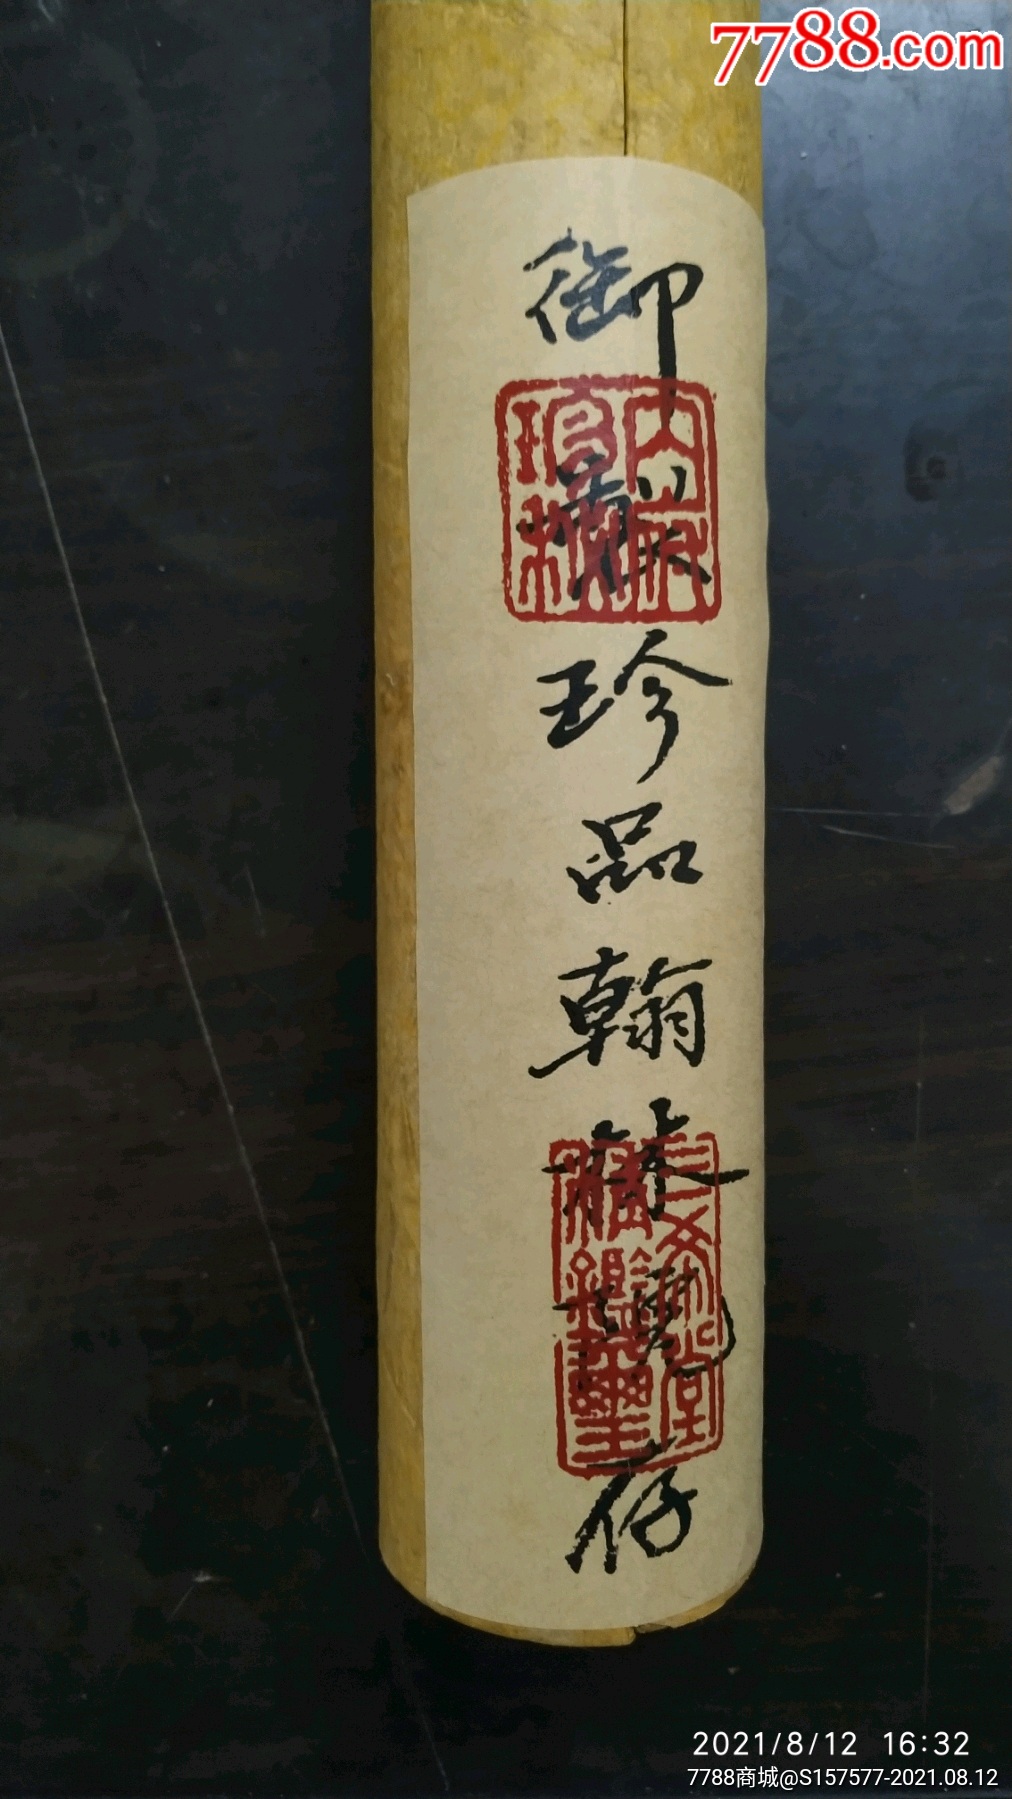 7788.com
御藏珍品翰林苑存
内府珍秘
三希堂精鑑璽
2021/8/12 16:32
7788商城@S157577-2021.08.12